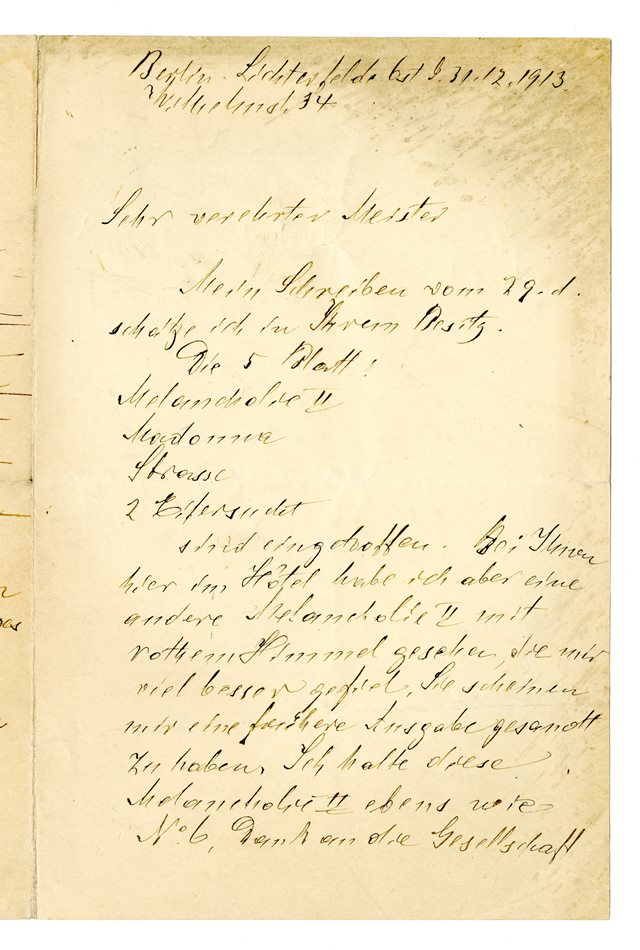 Berlin-Lichterfelde Ost d. 31.12.1913.
Wilhelmst. 34
Sehr verehrter Meister
Mein Schreiben vom 29. d.
schätze ich in Ihrem Besitz.
Die 5 Blatt:
Melancholie II
Madonna
Strasse
2 Eifersucht
sind eingetroffen. Bei Ihnen
hier im Hôtel habe ich aber eine
andere Melancholie II mit
rothem Himmel gesehen, die mir
viel besser gefiel, Sie scheinen
mir eine frühere Ausgabe gesandt
zu haben. Ich halte diese
Melancholie II ebens wie
No 6, Dank an die Gesellschaft